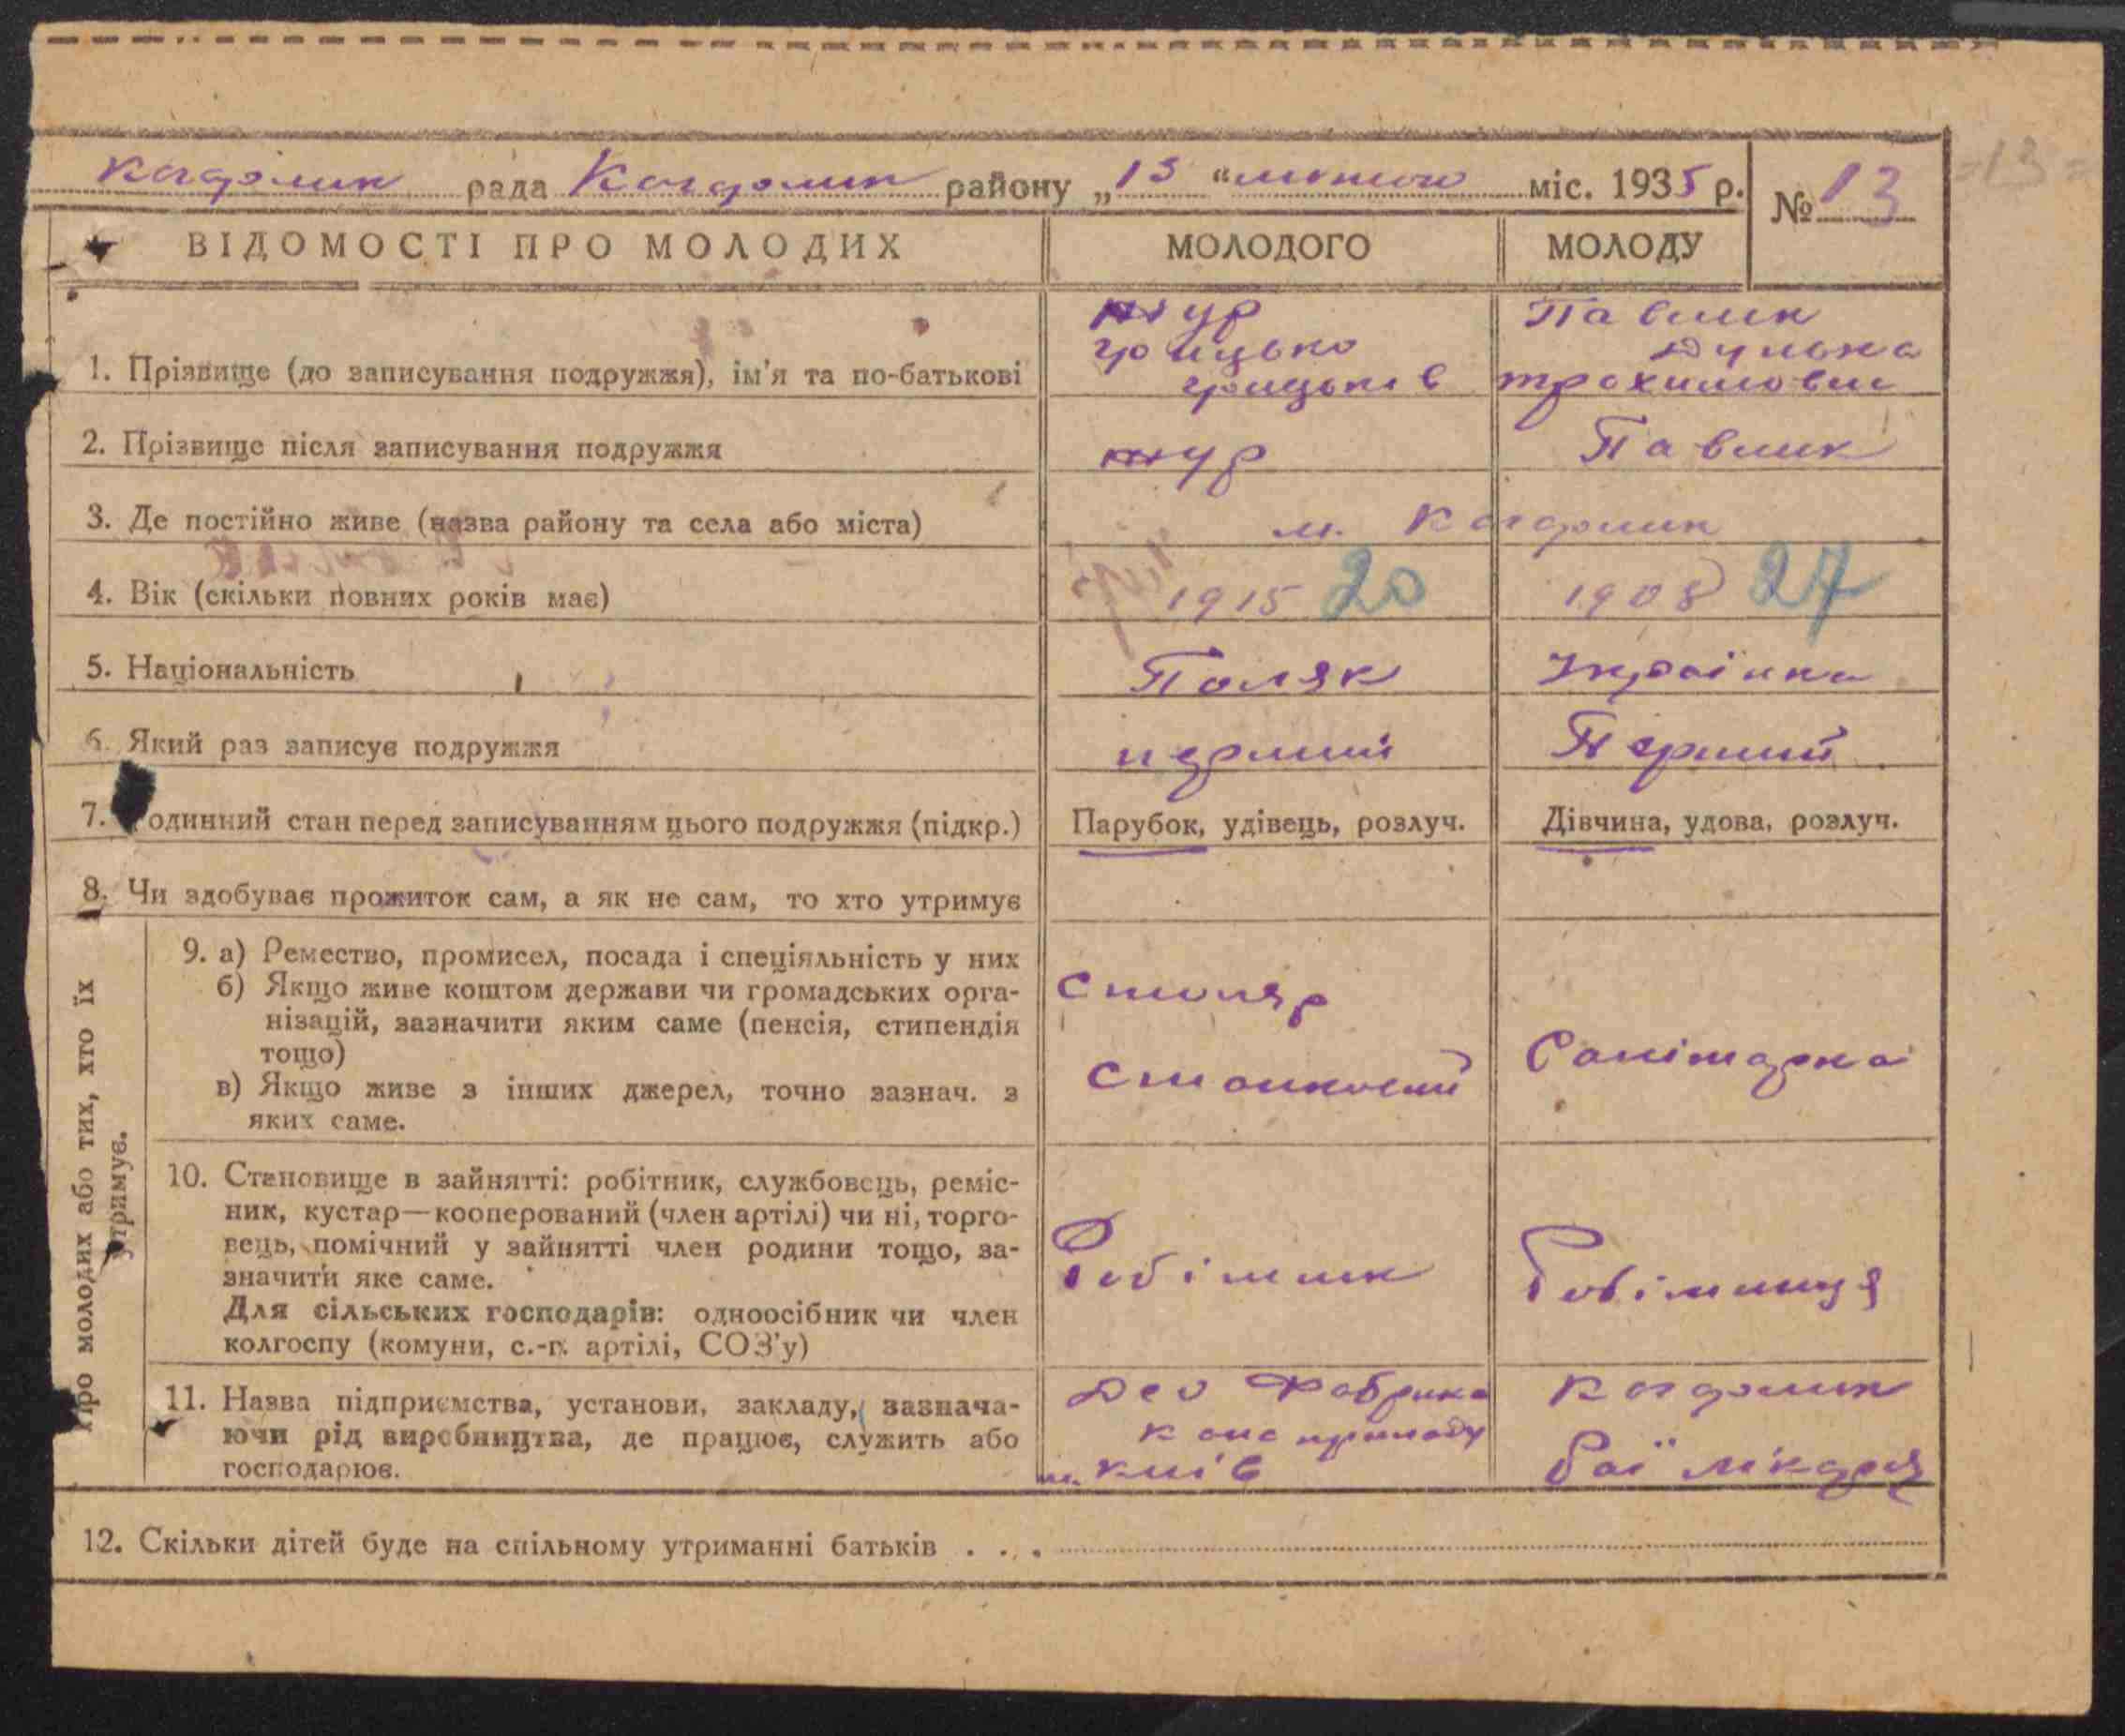 Кагарлик рада Кагарлик району „13 “ лютого міс. 1935 р. № 13
=13=
ВІДОМОСТІ ПРО МОЛОДИХ МОЛОДОГО МОЛОДУ
1. Прізвище (до записування подружжя), ім'я та по-батькові
Жур
Грицько
Грицьків
Павлик
Трохимовни
2. Прізвище після записування подружжя Жур Павлик
3. Де постійно живе (назва району та села або міста) м. Кагарлик
4. Вік (скільки повних років має) 1915 20 1908 27
5. Національність Поляк Українка
6. Який раз записує подружжя перший Перший
7. Родинний стан перед записуванням цього подружжя (підкр.) Парубок, удівець, розлуч. Дівчина, удова, розлуч.
8. Чи здобуває прожиток сам, а як не сам, то хто утримує
Про молодих або тих, хто їх
утримує.
9. а) Ремество, промисел, посада і спеціяльність у них
б) Якщо живе коштом держави чи громадських орга-
нізацій, зазначити яким саме (пенсія, стипендія
тощо)
в) Якщо живе з інших джерел, точно зазнач. з
яких саме.
Столяр
Станковий
Санітарка
10. Становище в зайнятті: робітник, службовець, реміс-
ник, кустар—кооперований (член артілі) чи ні, торго-
вець, помічний у зайнятті член родини тощо, за-
значити яке саме.
Для сільських господарів: одноосібник чи член
колгоспу (комуни, с.-г. артілі, СОЗ'у)
Робітник
Робітниця
11. Назва підприємства, установи, закладу, зазнача-
ючи рід виробництва, де працює, служить або
господарює.
Фабрика
кіно приладу
м. Київ
Кагарлик
Рай лікарня
12. Скільки дітей буде на спільному утриманні батьків . . .